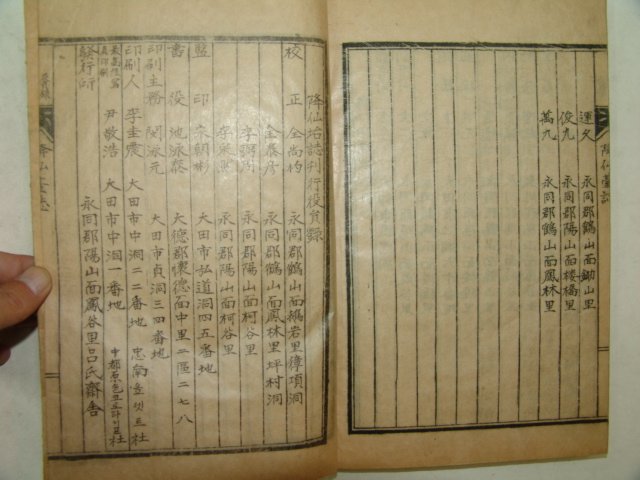 運久 永同郡鶴山面鋤山里
俊九 永同郡陽山面樓橋里
萬九 永同郡鶴山面鳳林里
降仙坮誌刊行役員錄
校正 金尚均 永同郡鶴山面 岩里 項洞
金 彦 永同郡鶴山面鳳林里坪村洞
李 永同郡陽山面柯谷里
李 永同郡陽山面柯谷里
監印 宋朝彬 大田市弘道洞四五番地
書役 池泳 大德郡懷德面中里二區二七八
印刷主務 閔泳元 大田市貞洞三四番地
印刷人 李圭震 大田市中洞二二番地 忠南 社
印刷 尹敬浩 大田市中洞一番地 中都原色 社
發行所 永同郡陽山面鳳谷里呂氏齋舍